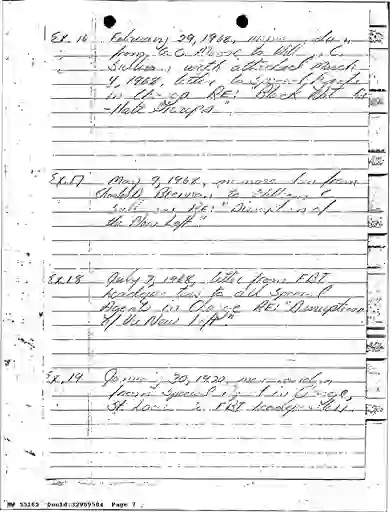 Ex. 16 February 29, 1968, memorandum
from G.C. Moore to William C.
Sullivan, with attached March
4, 1968, letter to Special Agent
in Charge RE: "Black Nat.
-Hate Groups".
Ex. 17 May 9, 1968, memorandum from
Charles D. Brennan to William C.
Sullivan RE: "Disruption of
the New Left"
Ex. 18 July 7, 1968, letter from FBI
headquarters to all Special
Agents in Charge RE: "Disruption
of the New Left"
Ex. 19 30, 1970, memorandum
from Special Agent in Charge,
St. Louis to FBI headquarters
NW 55165 DocId:32989584 Page 7